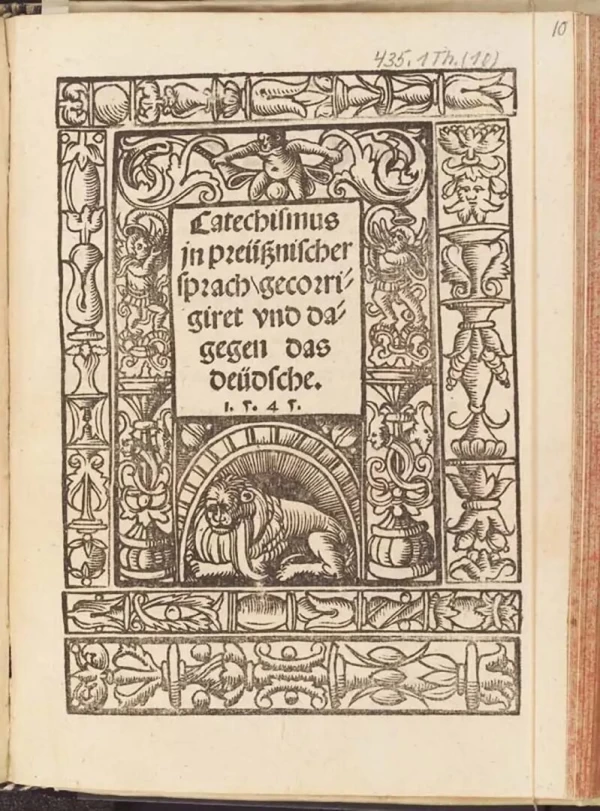 10
435. 1 Th. (10)
Catechismus
jn preüßnischer
sprach\gecorri-
giret vnd da-
gegen das
deüdsche.
1. 5. 4 5.